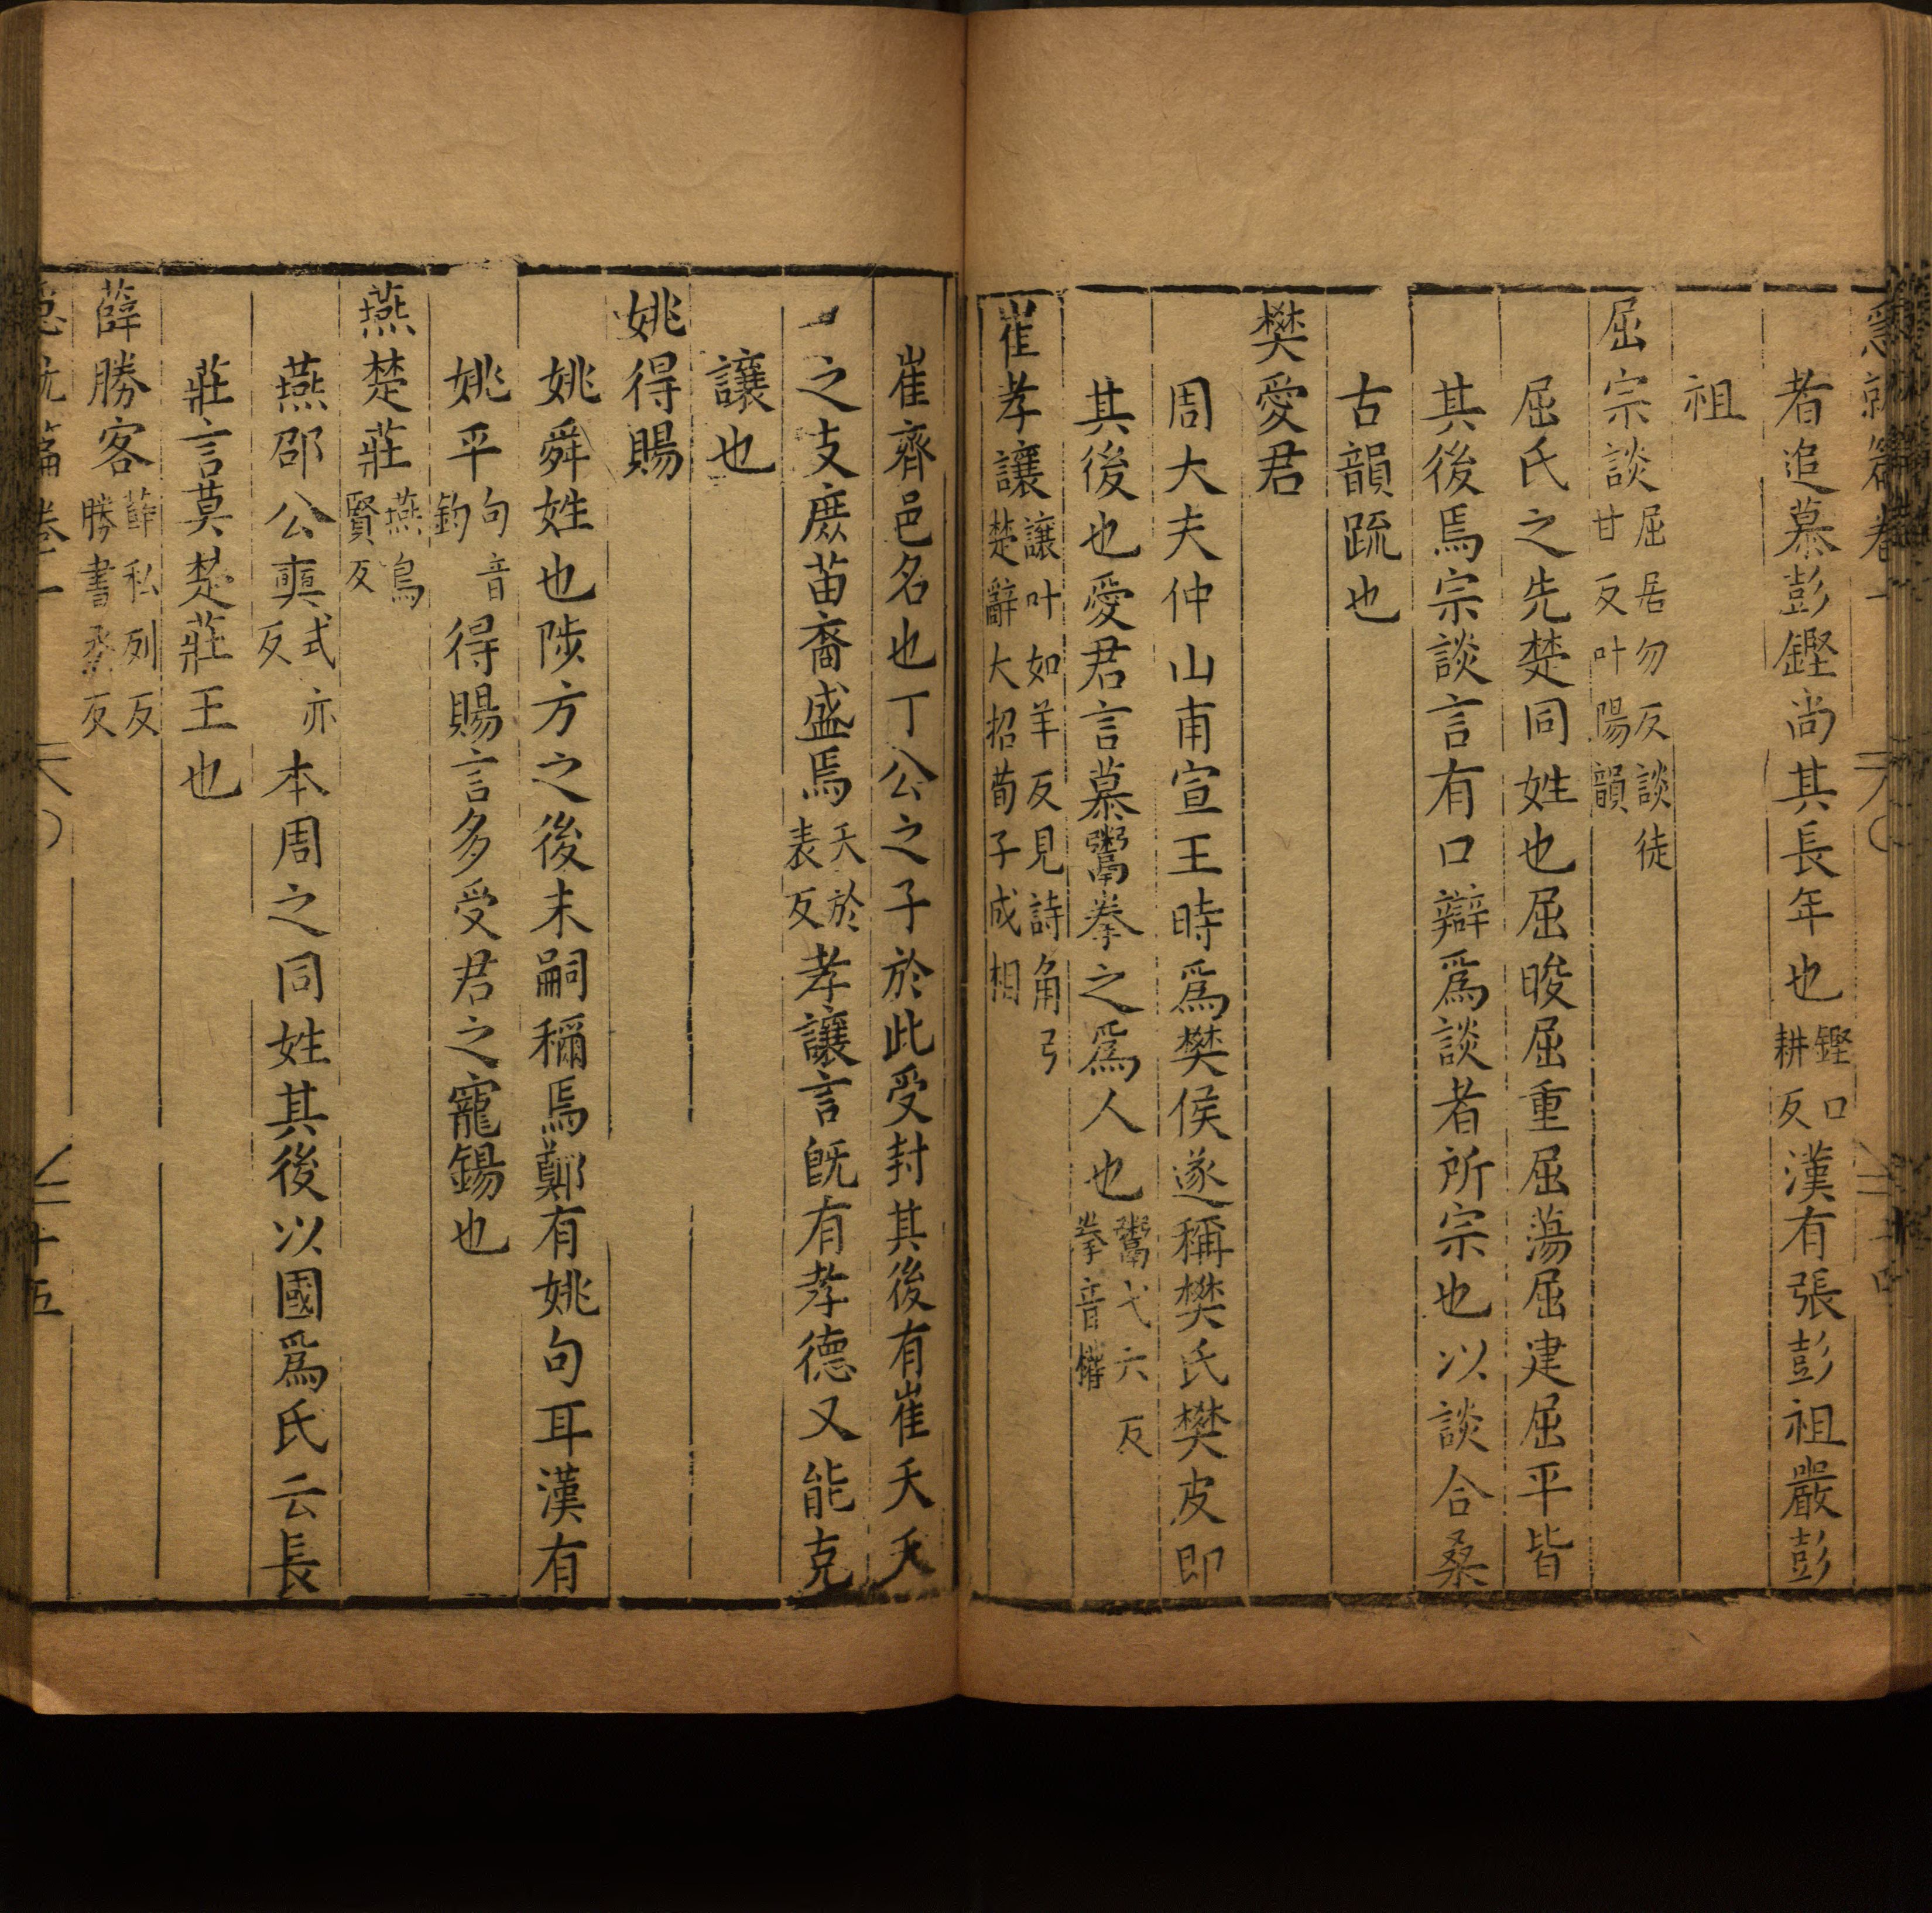 急就篇卷一
者追慕彭鏗尚其長年也鏗口耕反漢有張彭祖嚴彭
祖
屈宗談屈居勿反談徒甘反叶陽韻
屈氏之先楚同姓也屈晙屈重屈蕩屈建屈平皆
其後焉宗談言有口辯爲談者所宗也以談合桑
古韻䟽也
樊愛君
周大夫仲山甫宣王時爲樊侯遂稱樊氏樊皮即
其後也愛君言慕鬻拳之爲人也鬻弋六反拳音權
崔孝讓讓叶如羊反見詩角弓楚辭大招荀子成相
崔齊邑名也丁公之子於此受封其後有崔夭夭
之支庶苗裔盛焉夭於表反孝讓言旣有孝德又能克
讓也
姚得賜
姚舜姓也陟方之後末嗣稱焉鄭有姚句耳漢有
姚平句音鈎得賜言多受君之寵錫也
燕楚莊燕烏賢反
燕邵公奭式亦反本周之同姓其後以國爲氏云長
莊言莫楚莊王也
薛勝客薛私列反勝書烝反
急就篇卷一
十五